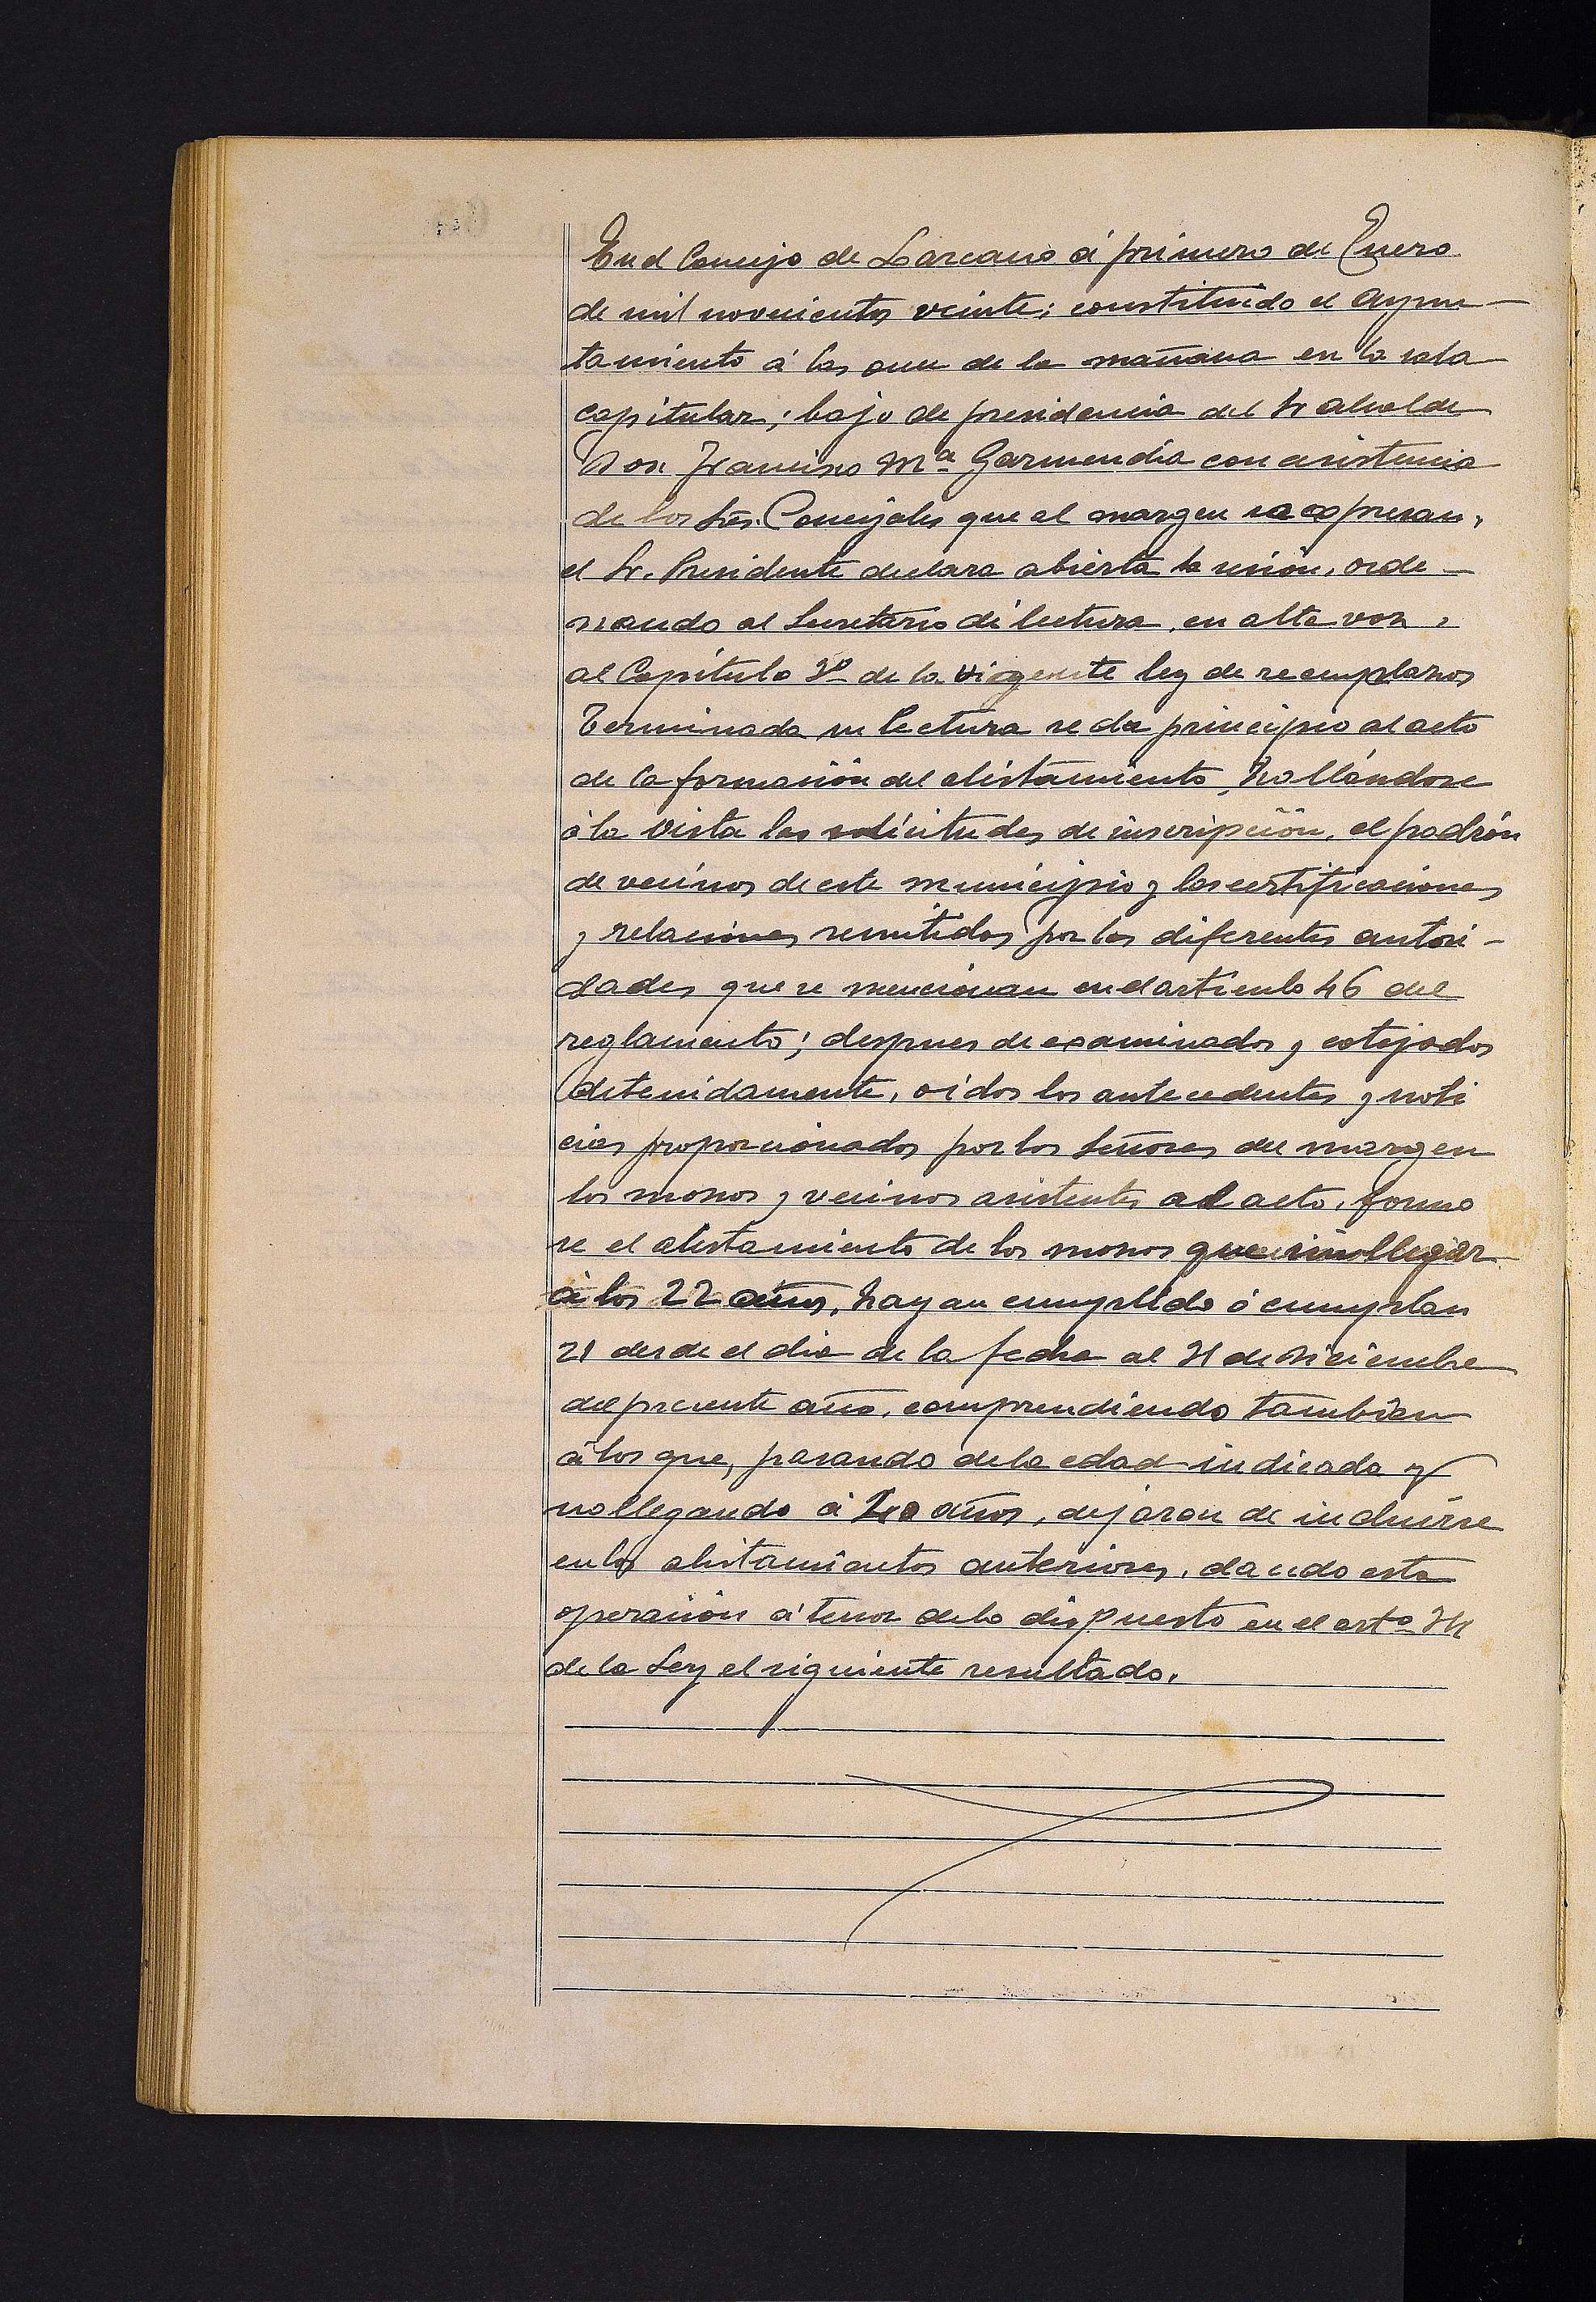 En el Concejo de Lazcano á primero de Enero
de mil novecientos veinte; constituido el Ayun-
tamiento á las once de la mañana en la sala
capitular, bajo de presidencia del Sr alcalde
Don Francisco Mª Garmendia con asistencia
de los Sres. Concejales que al margen se expresan,
el Sr. Presidente declara abierta la sesión, orde-
nando al Secretario dé lectura, en alta voz,
al Capítulo 3º de la vigente ley de reemplazos
Terminada su lectura se da principio al acto
de la formación del alistamiento, hallándose
á la vista las solicitudes de inscripción, el padrón
de vecinos de este municipio y las certificaciones
y relaciones remitidas por las diferentes autori-
dades que se mencionan en el artículo 46 del
reglamento; despues de examinados y cotejados
detenidamente, oidos los antecedentes y noti
cias proporcionados por los Señores del margen
los mozos y vecinos asistentes al acto, forma
se el alistamiento de los mozos que sin llegar
á los 22 años, hayan cumplido ó cumplan
21 desde el dia de la fecha al 31 de Diciembre
del presente año, comprendiendo tambien
á los que, pasando de la edad indicada y
no llegando á años, dejaron de incluirse
en los alistamientos anteriores, dando esta
operación á tenor de lo dispuesto en el artº
de la Ley el siguiente resultado.